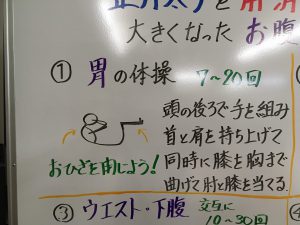 大きくなったお腹
① 胃の体操 7〜20回
頭の後ろで手を組み
首と肩を持ち上げて
同時に膝を胸まで
曲げて肘と膝を当てる.
おひざを曲げよう!
③ ウエスト・下腹 交互に
10〜30回